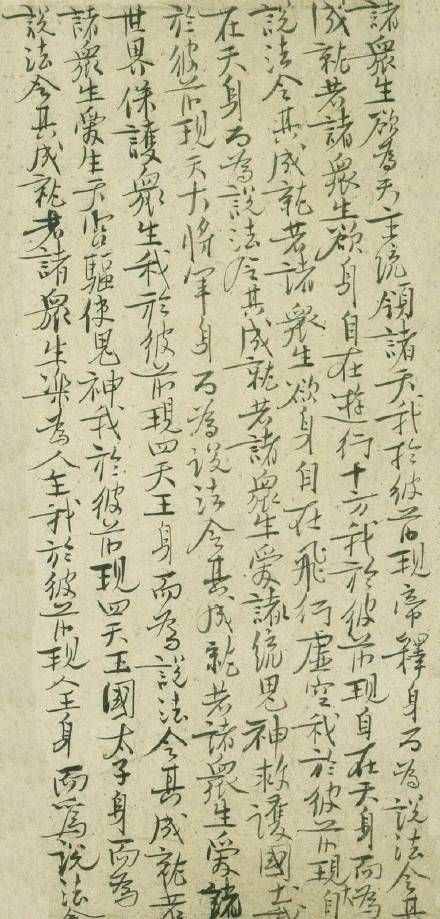 諸眾生欲為天主統領諸天我於彼前現帝釋身而為說法令其
成就若諸眾生欲身自在遊行十方我於彼前現身在天身而為
說法令其成就若諸眾生欲身自在飛行虛空我於彼前現大自
在天身而為說法令其成就若諸眾生愛諸統鬼神救護國土我
於彼前現天大將軍身而為說法令其成就若諸眾生愛諸
世界保護眾生我於彼前現四天王身而為說法令其成就若
諸眾生愛生天宮驅使鬼神我於彼前現四天王國太子身而為
說法令其成就若諸眾生樂為人主我於彼前現人王身而為說法令